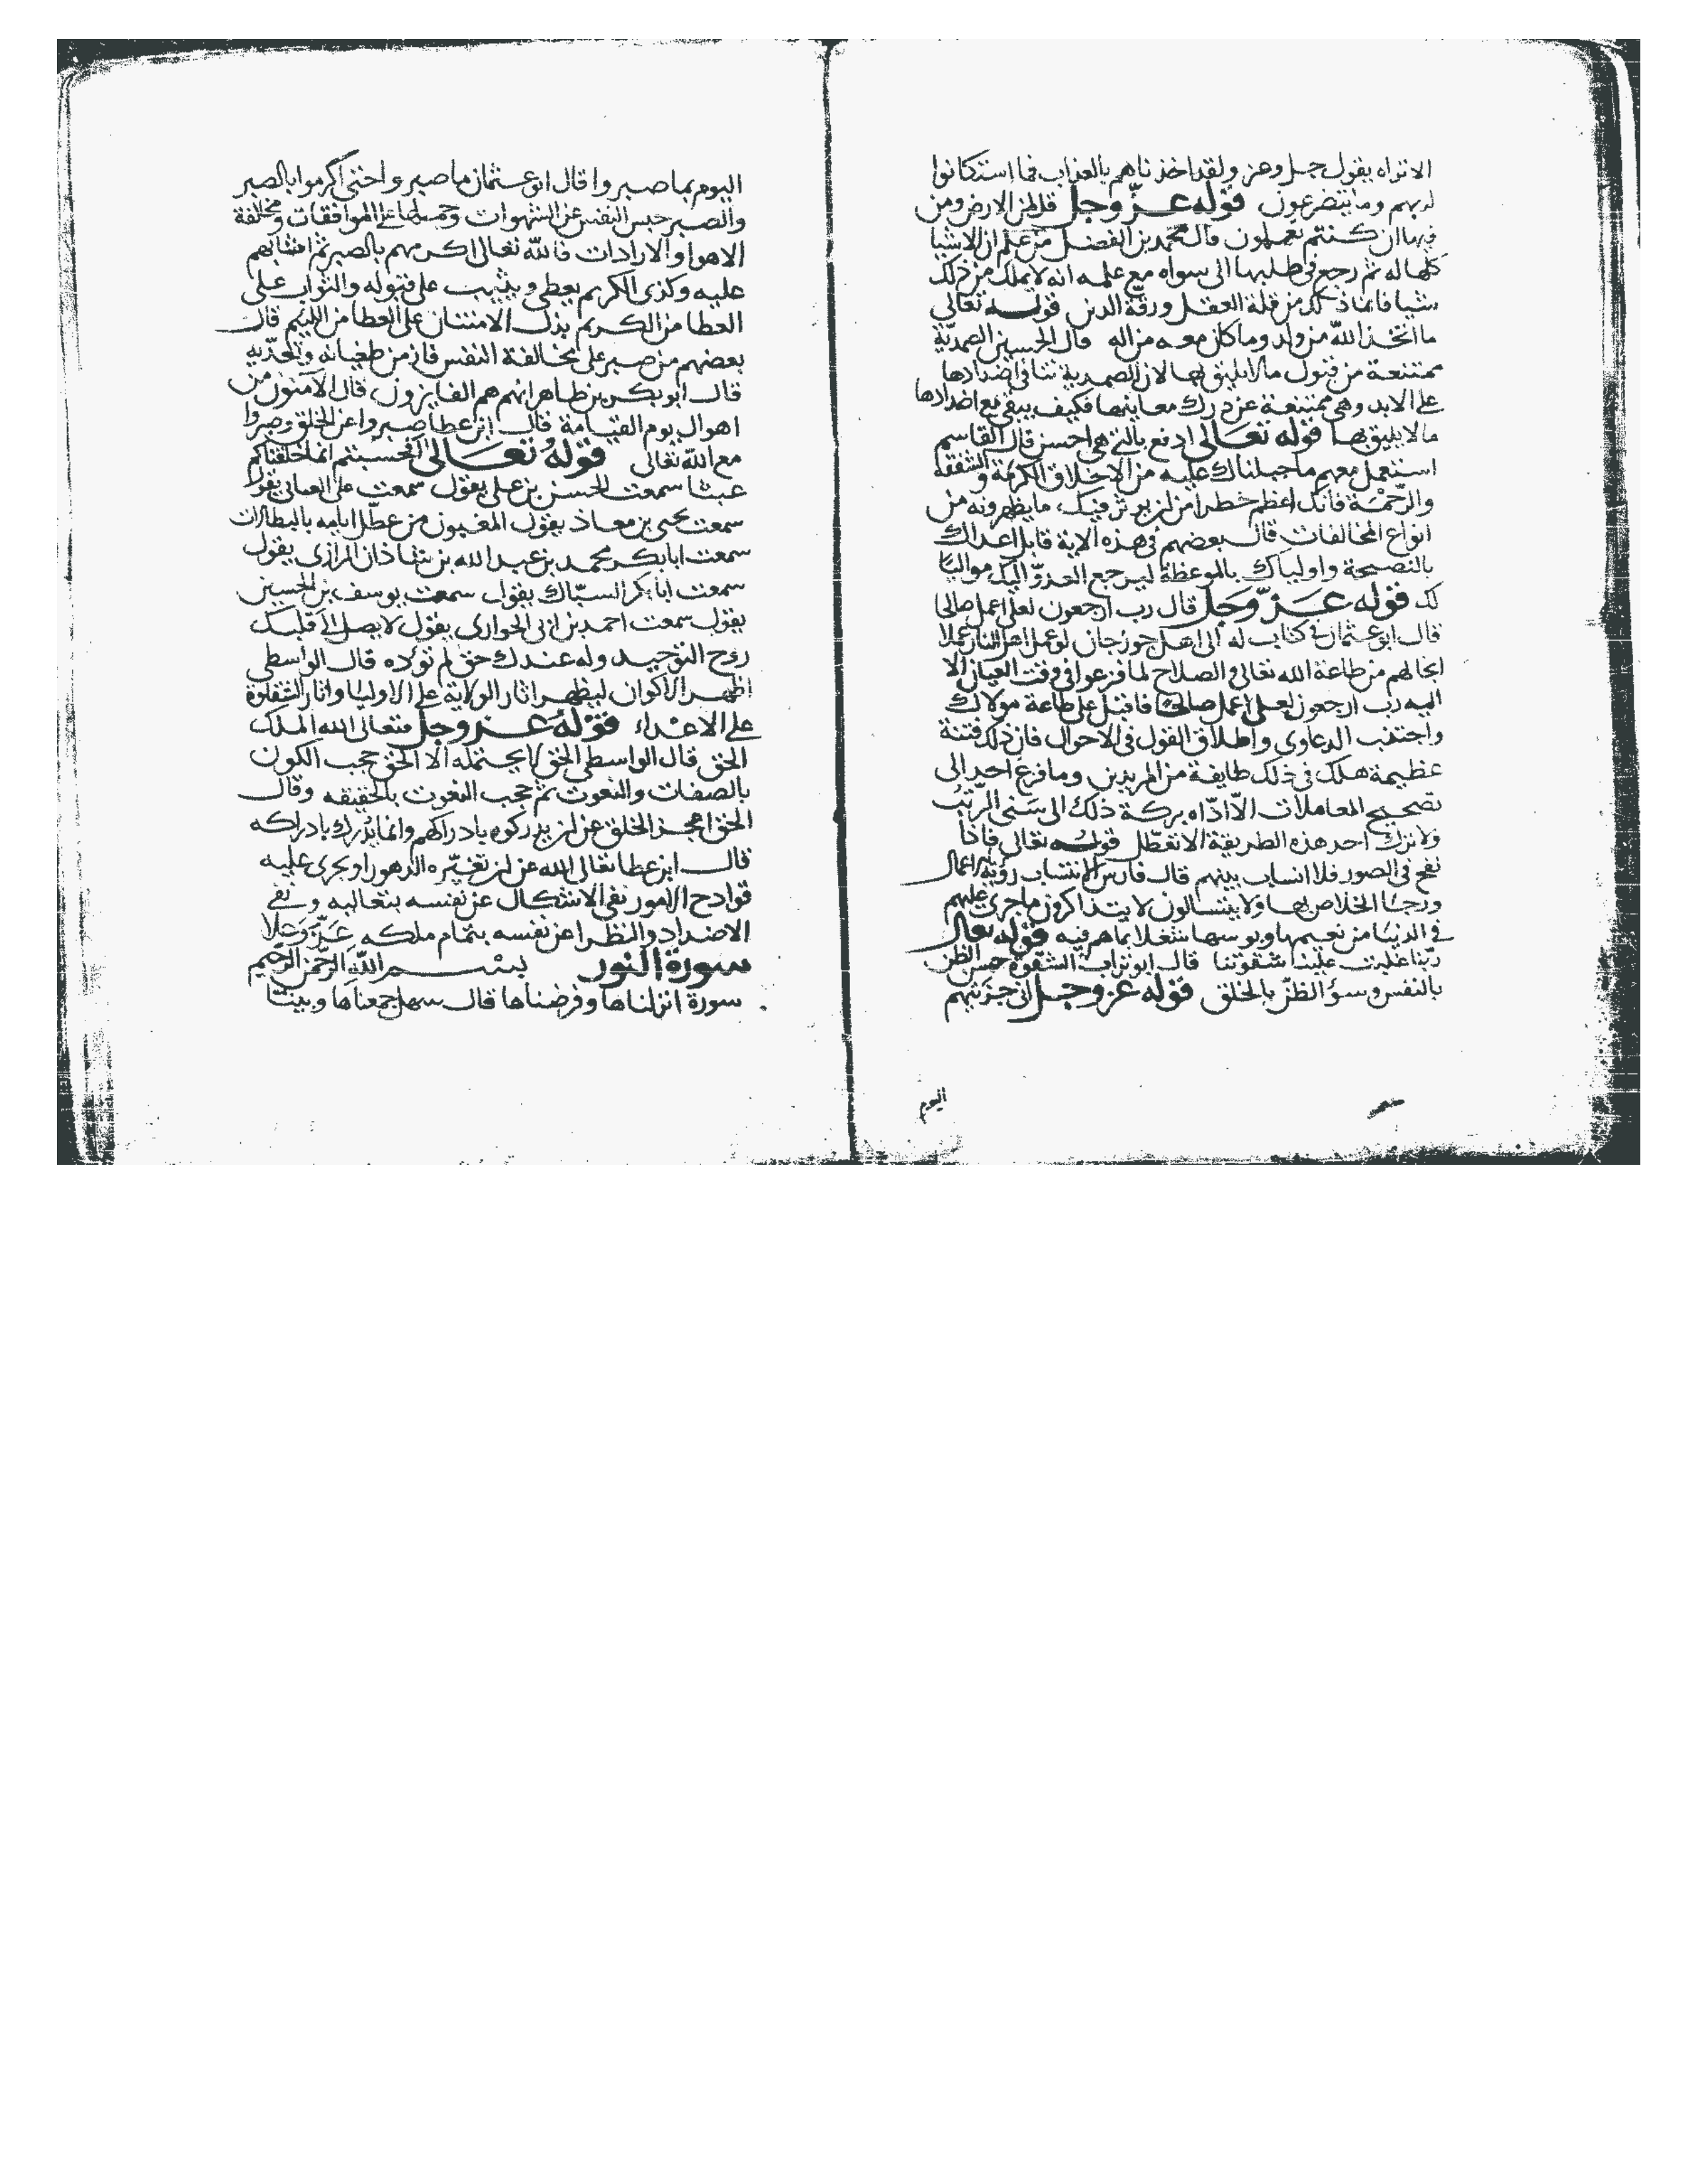 الاتراه يقول جل وعز ولقد اخذناهم بالعذاب فما استكانوا
لربهم وما يتضرعون قوله عزّ وجل قل لمن الارض ومن
فيها ان كنتم تعلمون قال محمد بن الفضل من علم ان الاشيا
كلها له ثم رجع في طلبها الى سواه مع علمه انه لا يملك من ذلك
شيا فانما ذلك من قلة العقل ورقّة الدين قوله تعالى
ما اتخذ الله من ولد وما كان معه من اله قال الحسين الصمديّة
ممتنعة من قبول ما لا يليق بها لان الصمدية تنافي اضدادها
على الابد وهي ممتنعة عن درك معاينها فكيف يبقى مع اضدادها
ما لا يليق بها قوله تعالى ادفع بالتي هي احسن قال القاسم
استعمل معهم ما جبلناك عليه من الاخلاق الكريمة والشفقة
والرّحمة فانك اعظم خطرا من ان يوثر فيك ما يظهرونه من
انواع المخالفات قال بعضهم في هذه الاية قابل اعداك
بالنصيحة واولياك بالموعظة ليرجع العدوّ اليك مواليا
لك قوله عزّ وجل قال رب ارجعون لعلي اعمل صالحا
قال ابو عثمان في كتاب له الى اهل جوزجان لو عمل اهل النار عملا
انجا لهم من طاعة الله تعالى والصلاح لما فزعوا في وقت العيان الا
اليه رب ارجعون لعلي اعمل صالحا فاقبل على طاعة مولاك
واجتنب الدعاوي واطلاق القول في الاحوال فان ذلك فتنة
عظيمة هلك في ذلك طايفة من المريدين وما فزع احد الى
تصحيح المعاملات الّا ادّاه بركة ذلك الى سنى الرّتب
ولا ترك احد هذه الطريقة الا تعطّل قوله تعالى فاذا
نفخ في الصور فلا انساب بينهم قال فارس الانتساب رؤية اعمال
ورجا الخلاص بها ولا يتسالون لا يتذاكرون ما جرى عليهم
في الدنيا من نعيمها وبوسها شغلا بما هم فيه قوله تعالى
ربّنا غلبت علينا شقوتنا قال ابو تراب الشقوة حسن الظن
بالنفس وسؤ الظنّ بالخلق قوله عز وجل اني جزيتهم
اليوم
اليوم بما صبروا قال ابو عثمان ما صبروا حتى اكرموا بالصبر
والصبر حبس النفس عن الشهوات وحملها على الموافقات ومخالفة
الاهوا والارادات فالله تعالى اكرمهم بالصبر ثم اثابهم
عليه وكذى الكريم يعطي ويثيب على قبوله والثواب على
العطا من الكريم بذل الامتنان على العطا من اللييم قال
بعضهم من صبر على مخالفة النفس فاز من طغيانه وتعذّيه
قال ابو بكر بن طاهر انهم هم الفايزون قال الآمنون من
اهوال يوم القيامة قال ابن عطا صبروا عن الخلق وصبروا
مع الله تعالى قوله تعالى افحسبتم انما خلقناكم
عبثا سمعت الحسن بن علي يقول سمعت على العباي يقول
سمعت يحيى بن معاذ يقول المغبون من عطّل ايامه بالبطالات
سمعت ابابكر محمد بن عبد الله بن شاذان الرازي يقول
سمعت ابا بكر السبّاك يقول سمعت يوسف بن الحسين
يقول سمعت احمد بن ابي الحواري يقول لا يصل الى قلبك
روح التوحيد وله عندك حق لم تؤده قال الواسطي
اظهر الاكوان ليظهر اثار الولاية على الاوليا واثار الشقاوة
على الاعداء قوله عز وجل فتعالى الله الملك
الحق قال الواسطي الحق لا يحتمله الا الحق حجب الكون
بالصفات والنعوت ثم حجب النعوت بالحقيقه وقال
الحق اعجز الخلق عن ان يدركوه بادراكهم وانما يُدرك بادراكه
قال ابن عطا تعالى الله عن ان تغيّره الدهور او يجري عليه
قوادح الامور نفى الاشكال عن نفسه بتعاليه ونفى
الاضداد والنظرا عن نفسه بتمام ملكه عَزّ وَعلا
سورة النور بسم الله الرحمن الرحيم
سورة انزلناها وفرضناها قال سهل جمعناها وبينّا